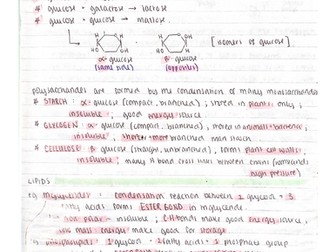 * glucose + galactose → lactose
* glucose + glucose → maltose.
HO OH HO
α-glucose β-glucose [isomers of glucose]
(same side) (opposites)
polysaccharides are formed by the condensation of many monosaccharides
* STARCH : α-glucose (compact, branched) ; stored in plants only ;
insoluble ; good energy source
* GLYCOGEN : α-glucose (compact, branched), stored in animals + bacteria ;
insoluble ; shorter + more branched than starch
* CELLULOSE : β-glucose (straight, unbranched), forms plant cell walls ;
insoluble ; many H bond cross links between chains (withstand
high pressure)
LIPIDS
eg. triglycerides : condensation reaction between 1 glycerol + 3
fatty acids forms ESTER BOND in triglyceride.
non polar - insoluble ; C-H bonds make good energy source ;
low mass : energy make good for storage
phospholipids : 1 glycerol + 2 fatty acids + 1 phosphate group